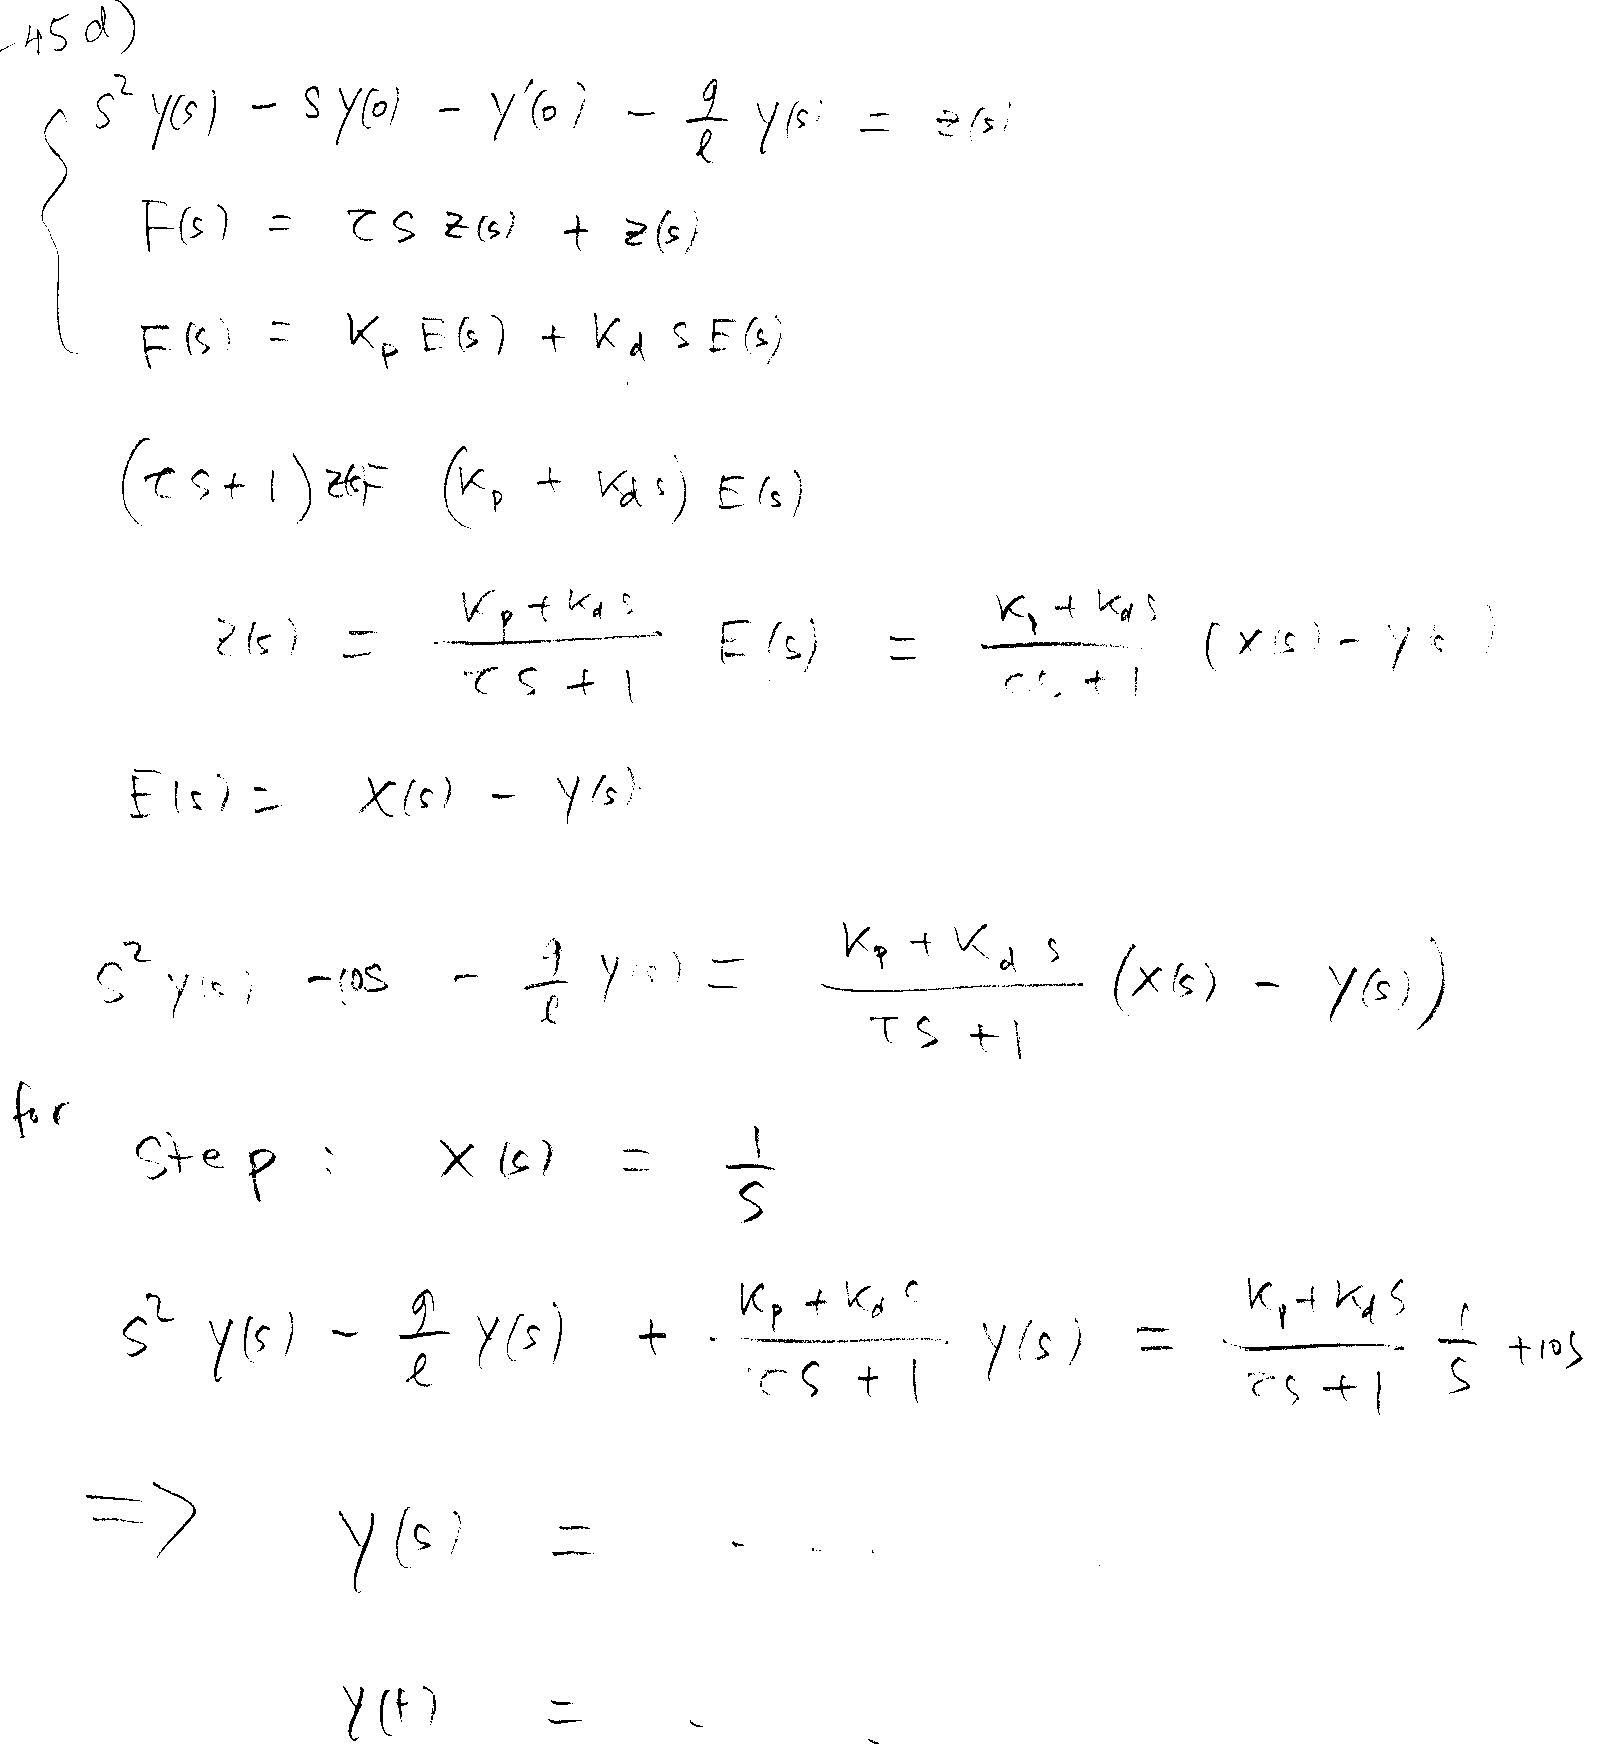 -45 d)
s² Y(s) - s Y(0) - Y'(0) - g/l Y(s) = z(s)
F(s) = τ s z(s) + z(s)
F(s) = Kp E(s) + Kd s E(s)
(τs + 1) z(s) = (Kp + Kd s) E(s)
z(s) = (Kp + Kd s)/(τs + 1) E(s) = (Kp + Kd s)/(τs + 1) (X(s) - Y(s))
E(s) = X(s) - Y(s)
s² Y(s) - 10s - g/l Y(s) = (Kp + Kd s)/(τs + 1) (X(s) - Y(s))
for
step : X(s) = 1/s
s² Y(s) - g/l Y(s) + (Kp + Kd s)/(τs + 1) Y(s) = (Kp + Kd s)/(τs + 1) 1/s + 10s
=> Y(s) = ....
Y(t) = . .